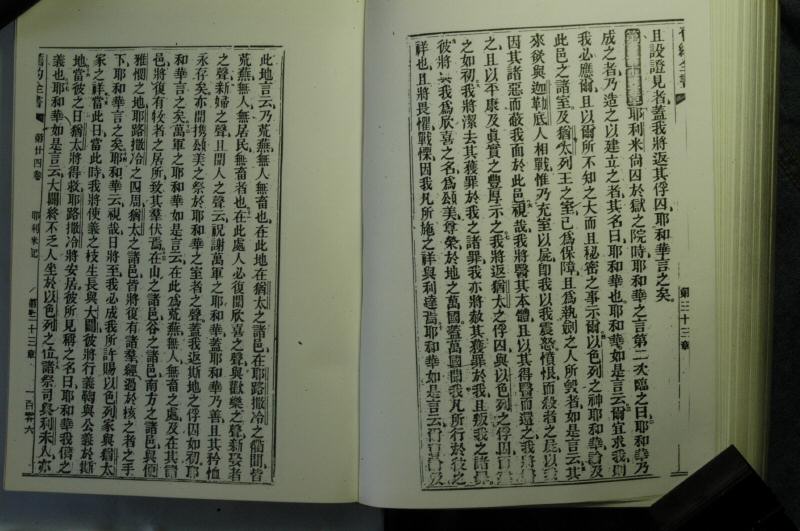 舊約全書
第三十三章
且設證見者蓋我將返其俘囚耶和華言之矣
耶利米尙囚於獄之院時耶和華之言第二次臨之曰耶和華乃
成之者乃造之以建立之者其名曰耶和華也耶和華如是言云爾宜求我則
我必應爾且以爾所不知之大而且秘密之事示爾以色列之神耶和華論及
此邑之諸室及猶太列王之室已爲保障且爲執劍之人所毀者如是言云其
來欲與迦勒底人相戰惟乃充室以屍卽我以我震怒憤恨而殺者之屍以
因其諸惡而蔽我面於此邑視哉我將醫其本體且以其得醫而還之我將
之且以平康及眞實之豐厚示之我將返猶太之俘囚與以色列之俘囚
之如初我將潔去其獲罪於我之諸罪我亦將赦其獲罪於我且叛我之諸
彼將 我爲欣喜之名爲頌美尊榮於地之萬國蓋萬國聞我凡所行於彼之
祥也且將畏懼戰慄因我凡所施之祥與利達焉耶和華如是言云
此地言云乃荒蕪無人無畜也在此地在猶太之諸邑在耶路撒冷之衢間皆
荒蕪無人無居民無畜者也在此處人必復聞欣喜之聲與歡樂之聲新娶者
之聲新婦之聲且聞人之聲云祝謝萬軍之耶和華蓋耶和華乃善且其矜恤
永存矣亦聞攜頌美之祭於耶和華之室者之聲蓋我返斯地之俘囚如初耶
和華言之矣萬軍之耶和華如是言云在此爲荒蕪無人無畜之處及在其諸
邑將復有牧者之居所致其羣伏焉在山之諸邑谷之諸邑南方之諸邑與便
雅憫之地耶路撒冷之四周猶太之諸邑皆將復有諸羣經過於核之者之手
下耶和華言之矣耶和華云視哉日將至我必成我所許賜以色列家與猶太
家之祥當此日當此時我將使義之枝生長與大闢彼將行義鞫與公義於斯
地當彼之日猶太將得救耶路撒冷將安居彼所見稱之名曰耶和華我儕之
義也耶和華如是言云大闢終不乏人坐於以色列之位諸祭司與利未人亦
舊約全書 第廿四卷 耶利米記 第三十三章 一百零六